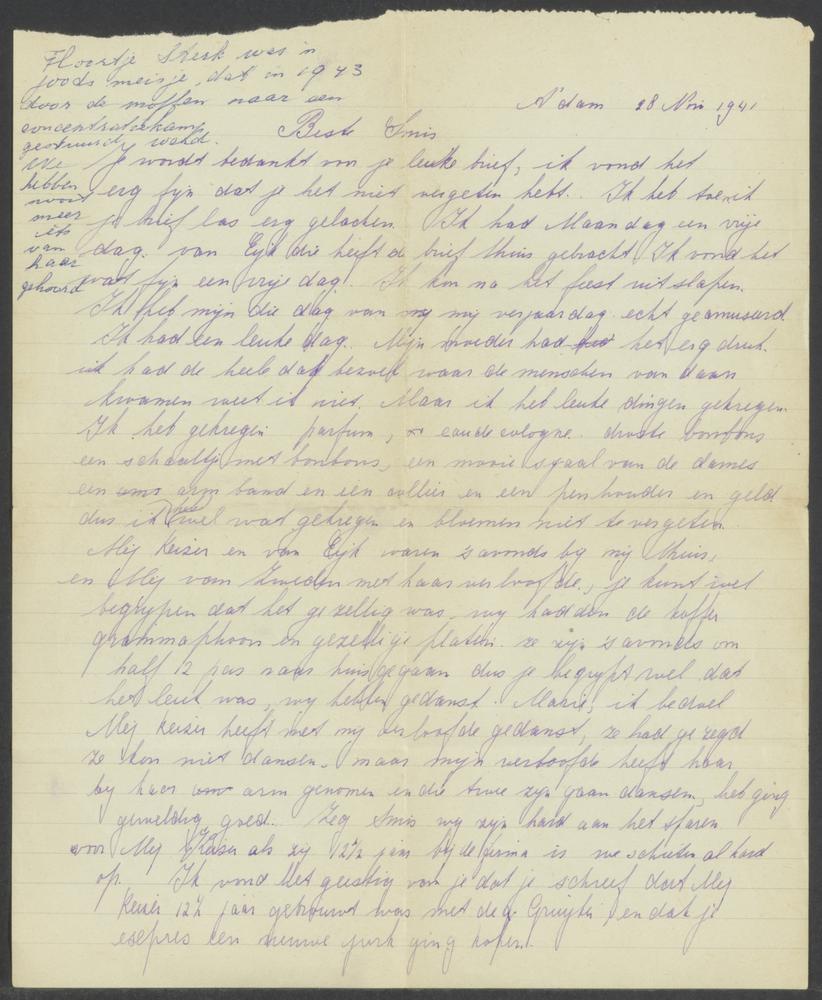 Floortje Sterk was 'n
joods meisje, dat in 1943
door de moffen naar een
concentratiekamp
gestuurd werd.
We
hebben
nooit
meer
iets
van
haar
gehoord
A'dam 28 Nov 1941
Beste Smis
Je wordt bedankt voor je leuke brief, ik vond het
erg fijn dat je het niet vergeten hebt. Ik heb toen ik
je brief las erg gelachen. Ik had Maandag een vrije
dag. van Eijk die heeft de brief thuis gebracht. Ik vond het
wat fijn een vrije dag. Ik kon na het feest uitslapen.
Ik heb mijn die dag van my verjaardag echt geamuseerd.
Ik had een leuke dag. Mijn moeder had het erg druk.
ik had de heele dag bezoek waar de menschen van daan
kwamen weet ik niet. Maar ik heb leuke dingen gekregen.
Ik heb gekregen parfum, eau de cologne. droste bonbons
een schaaltje met bonbons, een mooie sjaal van de dames
een arm band en een collier en een penhouder en geld
dus ik wel wat gekregen en bloemen niet te vergeten.
Mej Keizer en van Eijk waren s avonds by my thuis,
en Mej van Zweden met haar verloofde, je kunt wel
begrypen dat het gezellig was, wy hadden de koffer
grammaphoon en gezellige platen. ze zijn s avonds om
half 12 pas naar huis gegaan dus je begrypt wel dat
het leuk was, wy hebben gedanst. Marie, ik bedoel
Mej Keizer heeft met my verloofde gedanst, ze had gezegd
ze kon niet dansen, maar mijn verloofde heeft haar
by haar arm genomen en die twee zyn gaan dansen, het ging
geweldig goed. Zeg Smis wy zyn hard aan het sparen
voor Mej Keizer als zy 12½ jaar bij de firma is we schieten al hard
op. Ik vond het geestig van je dat je schreef dat Mej
Keizer 12½ jaar getrouwd was met de Gruyter, en dat je
expres een nieuwe jurk ging kopen.